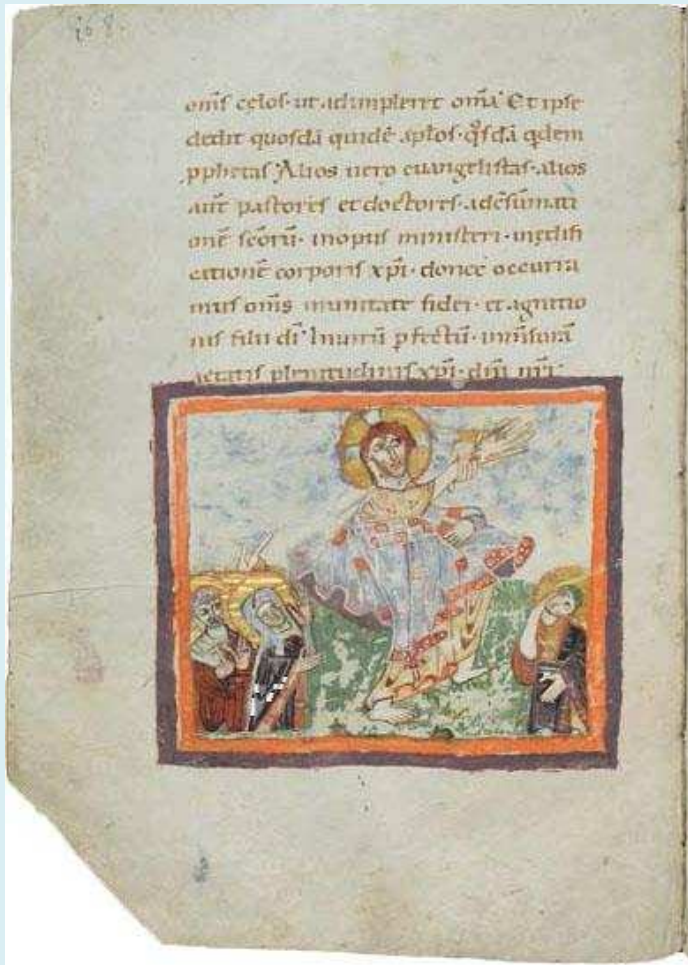 168.
om̄s cęlos· ut adimpleret om̄ia Et ipse
dedit quosdā quidē apl̄os· q̊sdā qdem
pphetas Alios uero euangelistas· alios
aūt pastores et doctores· adc̄sūmati
onē sc̄orū· inopus ministeri· inędifi
cationē corporis xp̄i· donec occurra
mus om̄s inunitate fidei· et agnitio
nis filii dī Inuirū pfectū· inm̄surā
aetatis plenitudinis xp̄i· dn̄i nr̄i